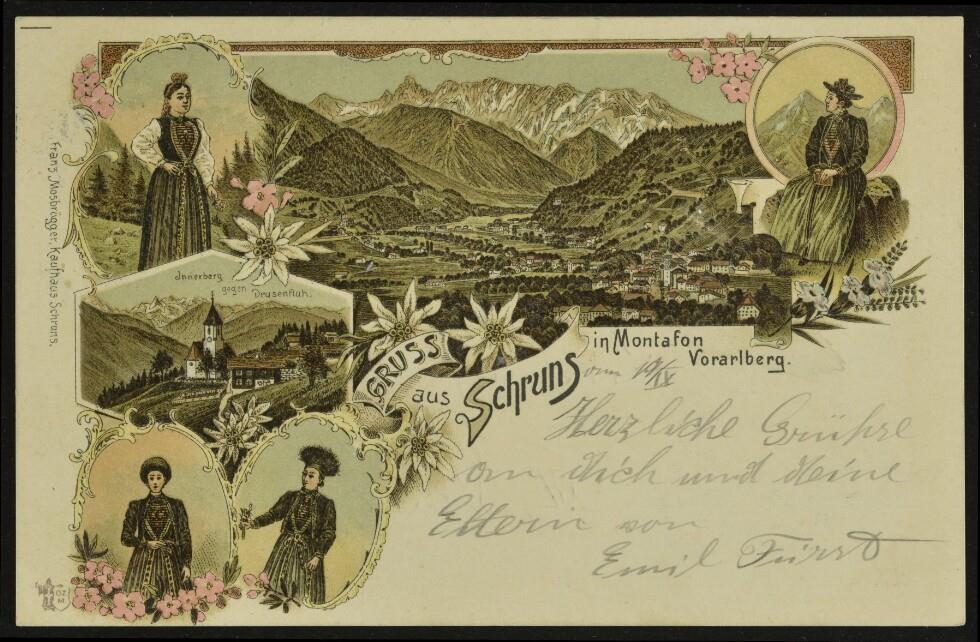 Franz Mosbrügger, Kaufhaus Schruns.
Innerberg
gegen Drusenfluh.
GRUSS
aus Schruns
in Montafon
Vorarlberg.
vom 19/IX
Herzliche Grüsse
an dich und deine
Eltern von
Emil Fürst
OZM.